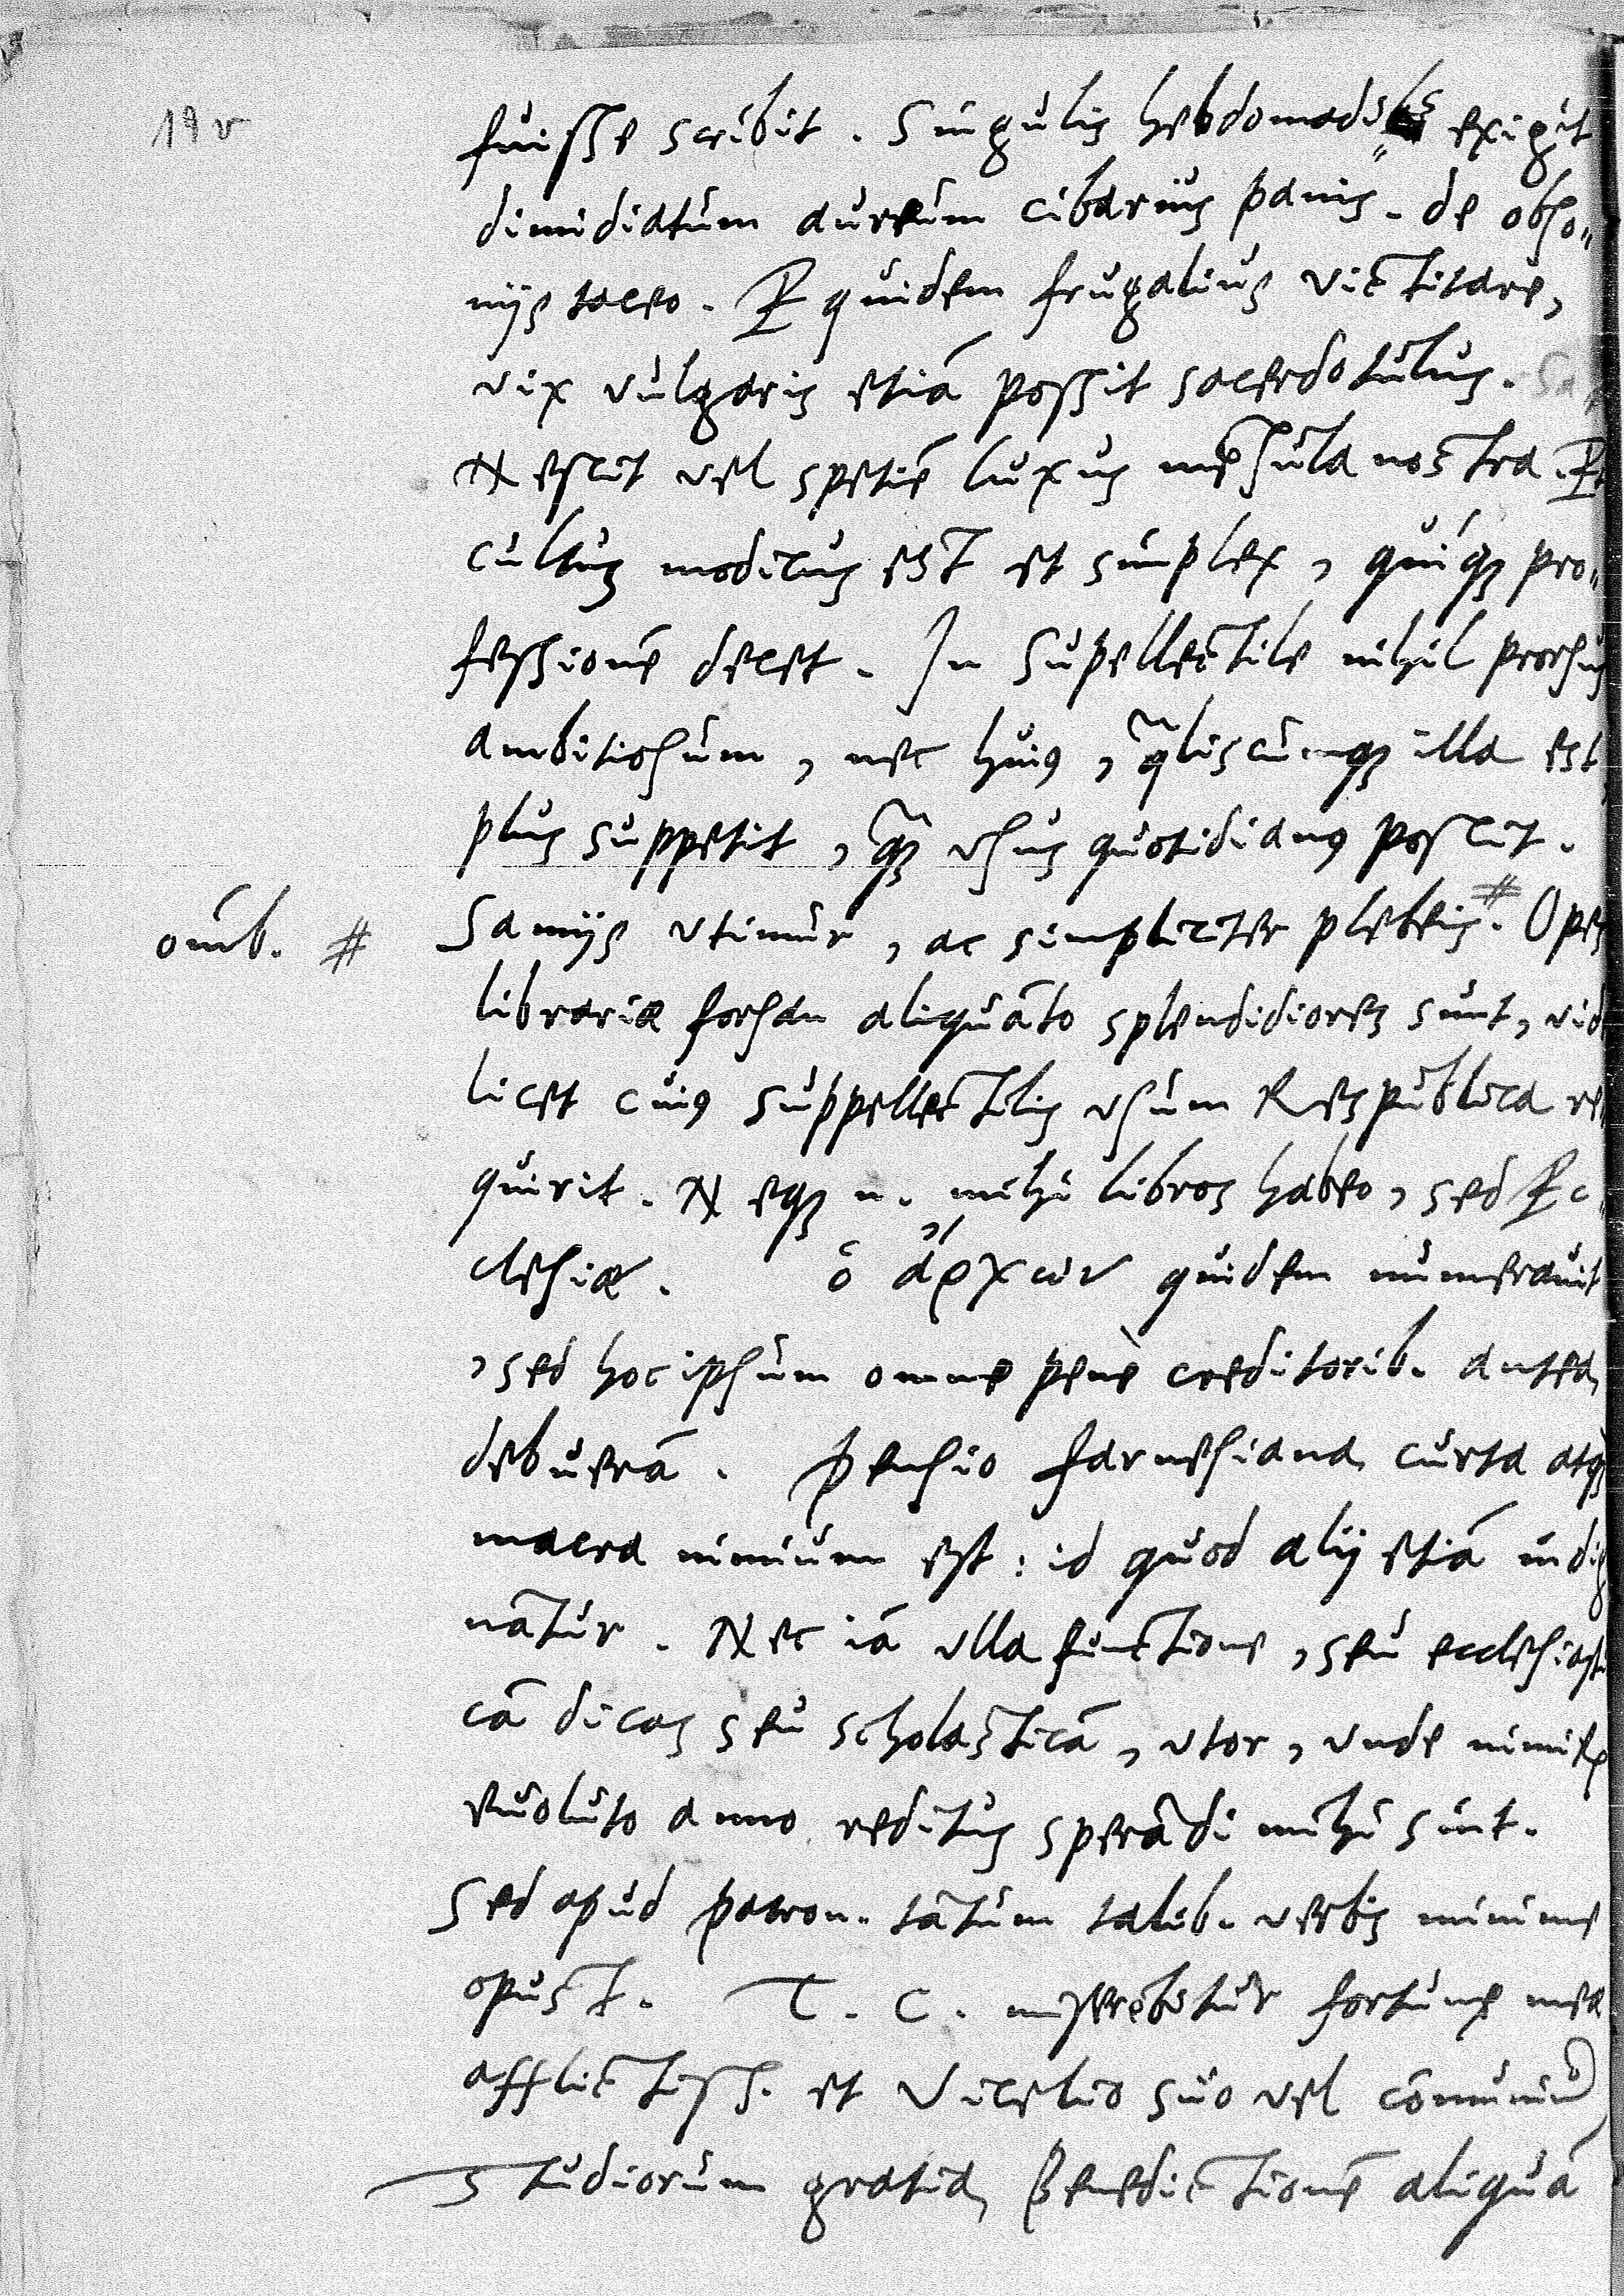 19 v
fuisse scribit. Singulis hebdomadis exigit
dimidiatum aureum cibarius panis. de obso„
nijs taceo. Equidem frugalius victitare,
vix vulgaris etiā possit sacerdotulus. Sa
Nescit vel spetiē luxus mēsula nostra. Et
cultus modicus est et simplex, quiq3 pro„
fessionē decet. In supellectile nihil prorsus
ambitiosum, nec huius, q̃liscumq3 illa est,
plus suppetit, q̃3 usus quotidianus poscit.
omīb. # Samijs utimur, ac simpliciter plebeis.# Opes
librariæ forsan aliquāto splendidiores sunt, vide
licet cuius suppellectilis usum Respublica re
quirit. Neq3 n. mihi libros habeo, sed Ec„
clesiæ. ὁ ἄρχων quidem numerauit
, sed hoc ipsum omne penè creditorib. antea
debuerā. Pensio farnesiana curta atq3
macra nimium est: id quod alij etiā indig
nātur. Nec iā ulla functione, seu ecclesiasti
cā dicas seu scholasticā, utor, unde nimirū
euoluto anno reditus sperādi mihi sint.
Sed apud patron. tātum talib. verbis minime
opust. T. C. miserebitur fortunę meæ
afflictiss. et Vicelio suo vel cōmuniū
studiorum gratia, Benedictionē aliquā